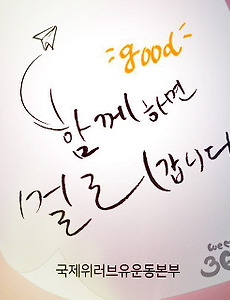 good
함께하면
멀리 갑니다
국제위러브유운동본부